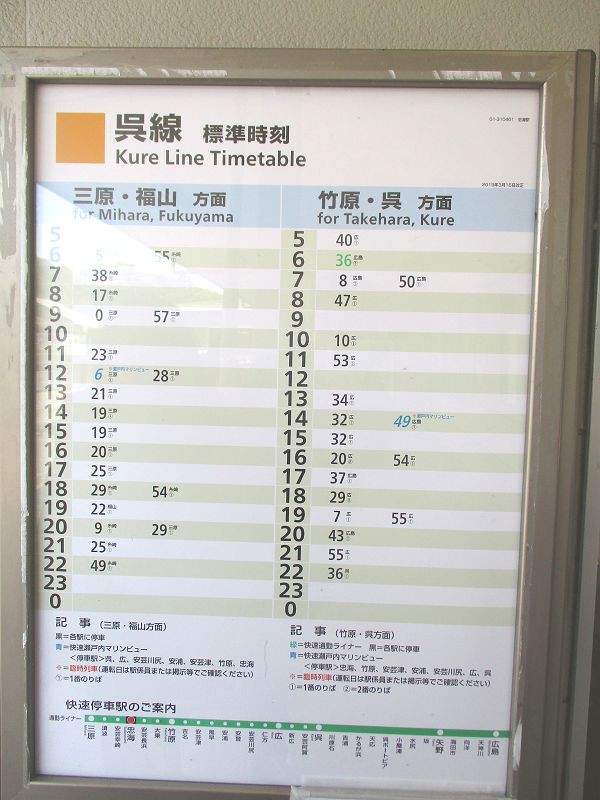 呉線 標準時刻
Kure Line Timetable
2019年3月16日改正
三原・福山 方面
for Mihara, Fukuyama
5
6 5 55 糸崎
7 38 糸崎①
8 17 糸崎①
9 0 三原① 57 三原①
10
11 23 三原①
12 6 ※瀬戸内マリンビュー 三原① 28 三原①
13 21 三原①
14 19 三原①
15 19 三原①
16 20 三原①
17 25 三原①
18 29 糸崎① 54 糸崎①
19 22 福山①
20 9 糸崎① 29 三原①
21 25 糸崎①
22 49 糸崎①
23
0
竹原・呉 方面
for Takehara, Kure
5 40 広
6 36 広島
7 8 広島 50 広島
8 47 広
9
10 10 広
11 53 広
12
13 34 広
14 32 広 49 ※瀬戸内マリンビュー 広島
15 32 広
16 20 広 54 広
17 37 広島
18 29 広
19 7 広 55 広
20 43 広島
21 55 広
22 36 呉
23
0
記 事 (三原・福山方面)
黒=各駅に停車
青=快速瀬戸内マリンビュー
<停車駅>呉、広、安芸川尻、安浦、安芸津、竹原、忠海
※=臨時列車(運転日は駅係員または掲示等でご確認ください)
①=1番のりば
記 事 (竹原・呉方面)
緑=快速通勤ライナー 黒=各駅に停車
青=快速瀬戸内マリンビュー
<停車駅>忠海、竹原、安芸津、安浦、安芸川尻、広、呉
※=臨時列車(運転日は駅係員または掲示等でご確認ください)
①=1番のりば ②=2番のりば
快速停車駅のご案内
通勤ライナー
三原
須波
安芸幸崎
忠海
安芸長浜
大乗
竹原
吉名
安芸津
風早
安浦
安登
安芸川尻
仁方
広
新広
安芸阿賀
呉
川原石
吉浦
かるが浜
天応
呉ポートピア
小屋浦
水尻
坂
矢野
海田市
向洋
天神川
広島